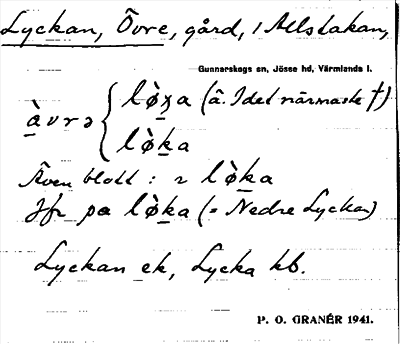 Lyckan, Övre, gård, i Allstakan,
Gunnarskogs sn, Jösse hd, Värmlands l.
å̱̀vrə { lø̀ʒa (å. I det närmaste †)
lø̀ḵa
Även blott: 2 lø̀ḵa
Jfr pa lø̀ḵa (= Nedre Lyckan)
Lyckan ek, Lycka kb.
P. O. GRANÉR 1941.